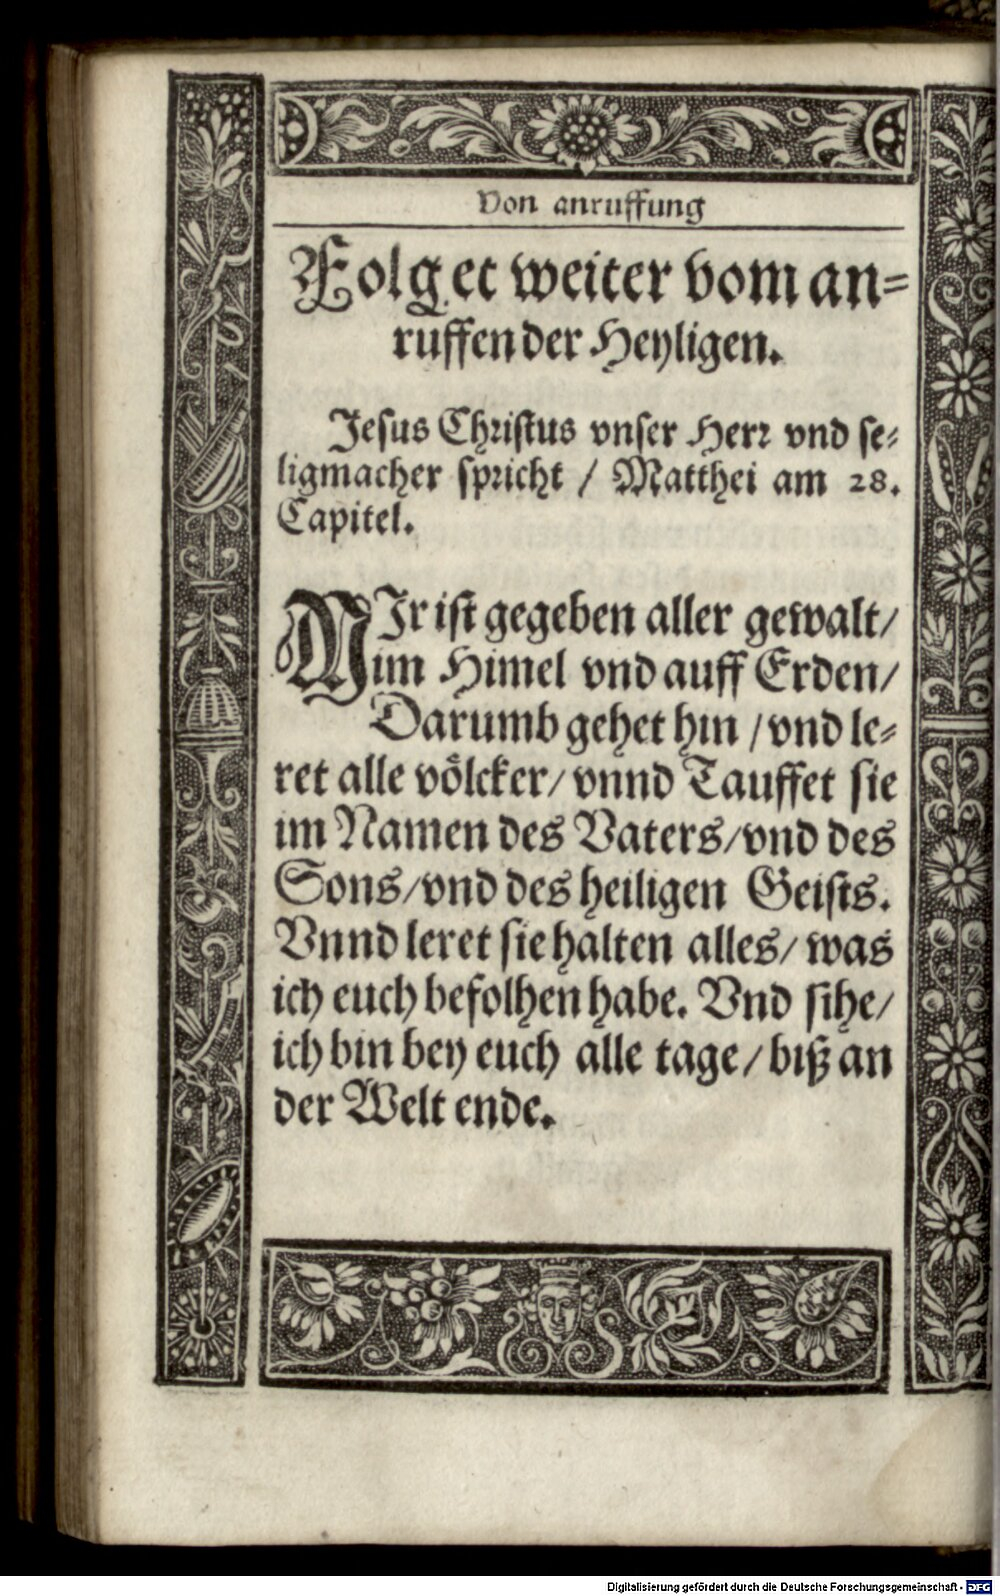 Von anruffung
Folget weiter vom an=
ruffen der Heyligen.
Jesus Christus vnser Herr vnd se=
ligmacher spricht / Matthei am 28.
Capitel.
MIr ist gegeben aller gewalt/
im Himel vnd auff Erden/
Darumb gehet hin / vnd le=
ret alle völcker/ vnnd Tauffet sie
im Namen des Vaters/vnd des
Sons/vnd des heiligen Geists.
Vnnd leret sie halten alles/ was
ich euch befolhen habe. Vnd sihe/
ich bin bey euch alle tage/ biß an
der Welt ende.
Digitalisierung gefördert durch die Deutsche Forschungsgemeinschaft - DFG